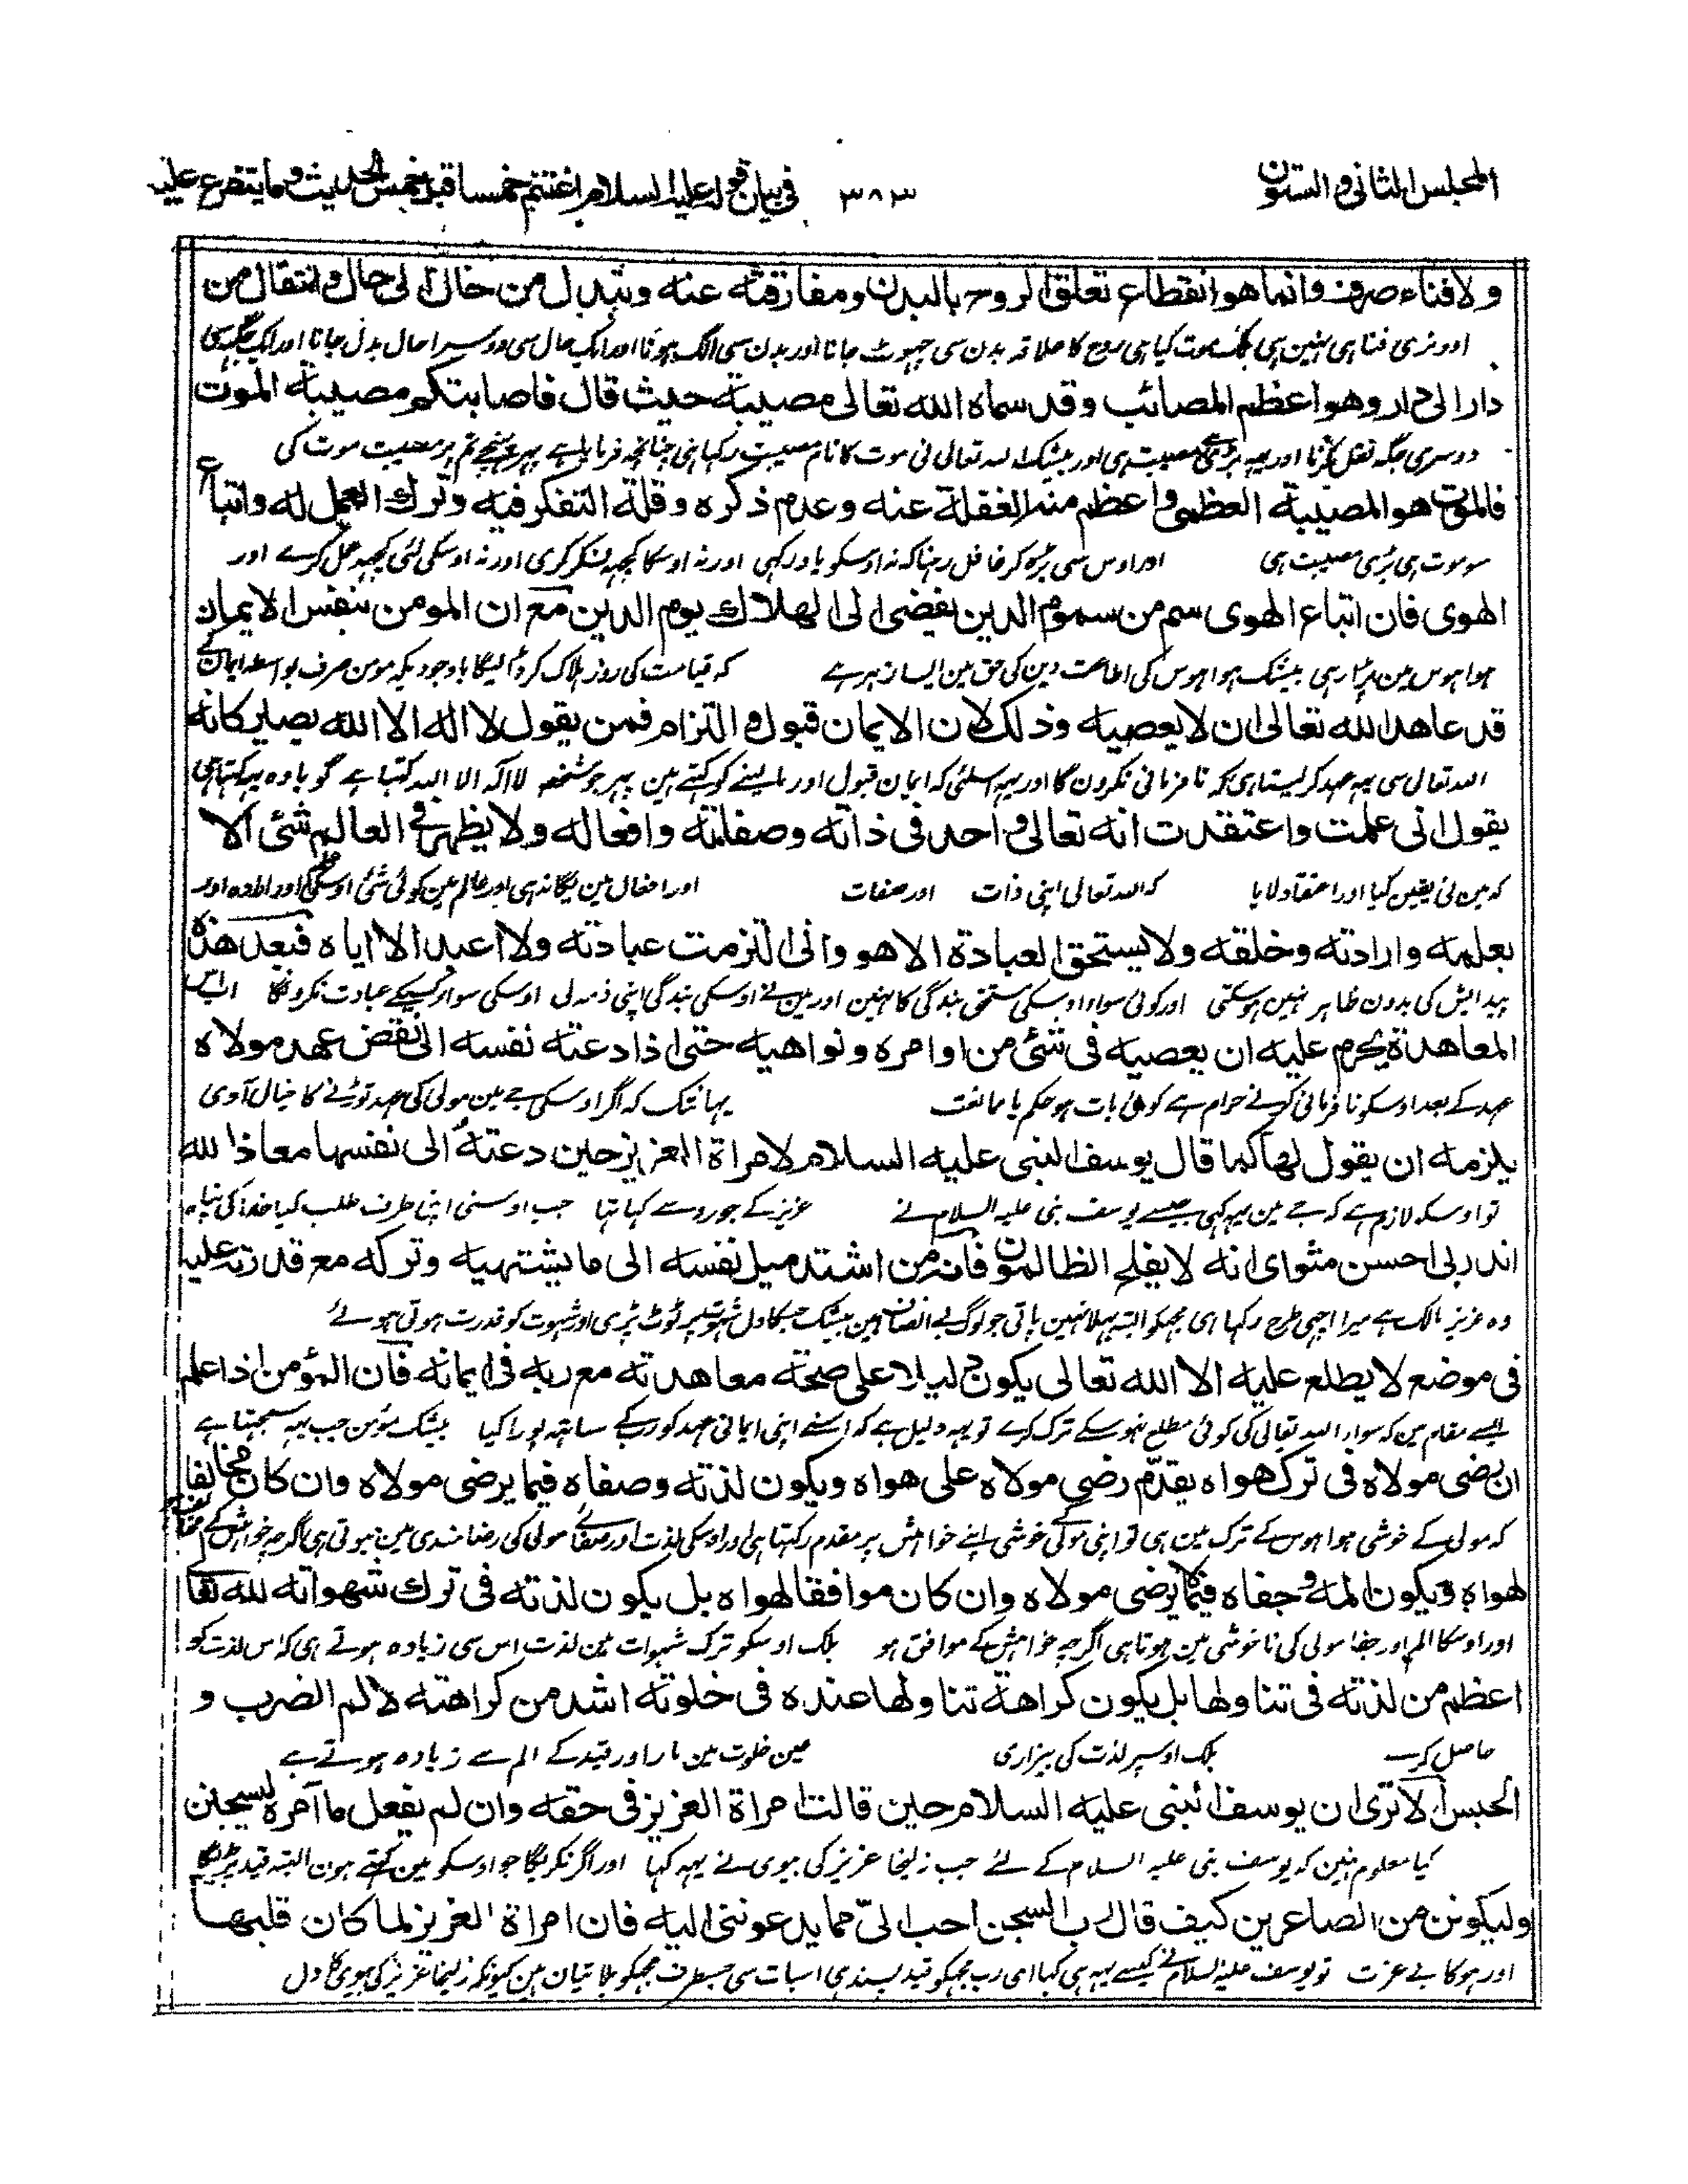 المجلس الثاني والستون ٣٨٣ في بيان قوله عليه السلام اغتنم خمسا قبل خمس الحديث وما يتفرع عليه
ولا فناء صرف وانما هو انقطاع تعلق الروح بالبدن ومفارقته عنه وتبدل من حال الى حال وانتقال من
اور نری فنا ہی نہین ہی بلکہ موت کیا ہی روح کا علاقہ بدن سی چہوٹ جانا اور بدن سی الگ ہونا اور ایک حال سی دوسرا حال بدل جانا اور ایک جگہہ سی
دار الى دار وهو اعظم المصائب وقد سماه الله تعالى مصيبة حيث قال فاصابتكم مصيبة الموت
دوسری جگہ نقل کرنا اور یہہ بڑی مصیبت ہی اور بیشک اللہ تعالی نی موت کا نام مصیبت رکہا ہی چنانچہ فرمایا ہے پہر پہنچے تم پر مصیبت موت کی
فالموت هو المصيبة العظمى واعظم منه الغفلة عنه وعدم ذكره وقلة التفكر فيه وترك العمل له واتباع
سو موت ہی بڑی مصیبت ہی اور اوس سی بڑہ کر غافل رہنا کہ نہ اوسکو یاد رکہی اور نہ اوسکا کچہہ فکر کری اور نہ اوسکی لئی کچہہ عمل کرے اور
الهوى فان اتباع الهوى سم من سموم الدين يفضى الى الهلاك يوم الدين مع ان المومن بنفس الايمان
ہوا ہوس مین پڑا رہی بیشک ہوا ہوس کی اطاعت دین کی حق مین ایسا زہر ہے کہ قیامت کی روز ہلاک کر ڈالیگا باوجودیکہ مومن صرف بواسطہ ایمان کے
قد عاهد الله تعالى ان لا يعصيه وذلك لان الايمان قبول والتزام فمن يقول لا اله الا الله يصير كانه
اللہ تعالی سی یہہ عہد کر لیتا ہی کہ نافرمانی نکرون گا اور یہہ اسلئی کہ ایمان قبول اور مان لینے کو کہتے ہین پہر جو شخص لا الہ الا اللہ کہتا ہے گویا وہ یہہ کہتا ہی
يقول انى علمت واعتقدت انه تعالى واحد فى ذاته وصفاته وافعاله ولا يظهر فى العالم شئى الا
کہ مین نی یقین کیا اور اعتقاد لایا کہ اللہ تعالی اپنی ذات اور صفات اور افعال مین یگانہ ہی اور عالم مین کوئی شئی اوسکی علم اور ارادہ اور
بعلمه وارادته وخلقه ولا يستحق العبادة الا هو وانى التزمت عبادته ولا اعبد الا اياه فبعد هذه
پیدایش کی بدون ظاہر نہین ہوسکتی اور کوئی سوا اوسکی مستحق بندگی کا نہین اور مین نے اوسکی بندگی اپنی ذمہ لی اوسکی سوا اور کسیکے عبادت نکرونگا اب اس
المعاهدة يحرم عليه ان يعصيه فى شئى من اوامره ونواهيه حتى اذا دعته نفسه الى نقض عهد مولاه
عہد کے بعد اوسکو نافرمانی کرنے حرام ہے کوئی بات ہو حکم یا ممانعت یہانتک کہ اگر اوسکی جے مین مولی کی عہد توڑنے کا خیال آوی
يلزمه ان يقول لها كما قال يوسف النبى عليه السلام لامراة العزيز حين دعته الى نفسها معاذ الله
تو اوسکو لازم ہے کہ جے مین یہہ کہی جیسے یوسف نبی علیہ السلام نے عزیز کے جورو سے کہا تہا جب اوسنی اپنی طرف طلب کیا خدا کی پناہ
انه ربى احسن مثواى انه لا يفلح الظالمون فان من اشتد ميل نفسه الى ما يشتهيه وتركه مع قدرته عليه
وہ عزیز مالک ہے میرا اچہی طرح رکہا ہی مجہکو البتہ بہلا نہین پاتی جو لوگ بے انصاف ہین بیشک جسکا دل شہوت پر ٹوٹ پڑی اور شہوت کو قدرت ہوتی ہوئے
فى موضع لا يطلع عليه الا الله تعالى يكون دليلا على صحة معاهدته مع ربه فى ايمانه فان المؤمن اذا علم
ایسے مقام مین کہ سوا اللہ تعالی کی کوئی مطلع نہوسکے ترک کرے تو یہہ دلیل ہے کہ اسنے اپنی ایمانی عہد کو رب کے ساتہہ پورا کیا بیشک مؤمن جب یہہ سمجہتا ہے
ان رضى مولاه فى ترك هواه يقدم رضى مولاه على هواه ويكون لذته وصفاه فيما يرضى مولاه وان كان مخالفا
کہ مولی کے خوشی ہوا ہوس کے ترک مین ہی تو اپنی مولی کی خوشی اپنے خواہش پر مقدم رکہتا ہی اور اوسکی لذت اور صفائے مولی کی رضامندی مین ہوتی ہی اگرچہ خواہش کے مخالف
لهواه ويكون المه وجفاه فيما لا يرضى مولاه وان كان موافقا لهواه بل يكون لذته فى ترك شهواته لله تعا
اور اوسکا الم اور جفا مولی کی ناخوشی مین ہوتا ہی اگرچہ خواہش کے موافق ہو بلکہ اوسکو ترک شہوات مین لذت اس سی زیادہ ہوتے ہی کہ اس لذت کو
اعظم من لذته فى تناولها بل يكون كراهة تناولها عنده فى خلوته اشد من كراهته لالم الضرب و
حاصل کرے بلکہ اوسپر لذت کی بیزاری عین خلوت مین مار اور قید کے الم سے زیادہ ہوتے ہے
الحبس الا ترى ان يوسف النبى عليه السلام حين قالت امراة العزيز فى حقه وان لم يفعل ما آمره ليسجنن
کیا معلوم نہین کہ یوسف نبی علیہ السلام کے لئے جب زلیخا عزیز کی بیوی نے یہہ کہا اور اگر نکریگا جو اوسکو مین کہتے ہون البتہ قید پڑیگا
وليكونن من الصاغرين كيف قال رب السجن احب الى مما يدعوننى اليه فان امراة العزيز لما كان قلبها
اور ہوگا بے عزت تو یوسف علیہ السلام نے کیسے یہہ ہی کہا ای رب مجہکو قید پسند ہی اسبات سی جسطرف مجہکو بلاتیان ہین کیونکہ زلیخا عزیز کی بیوی کا دل